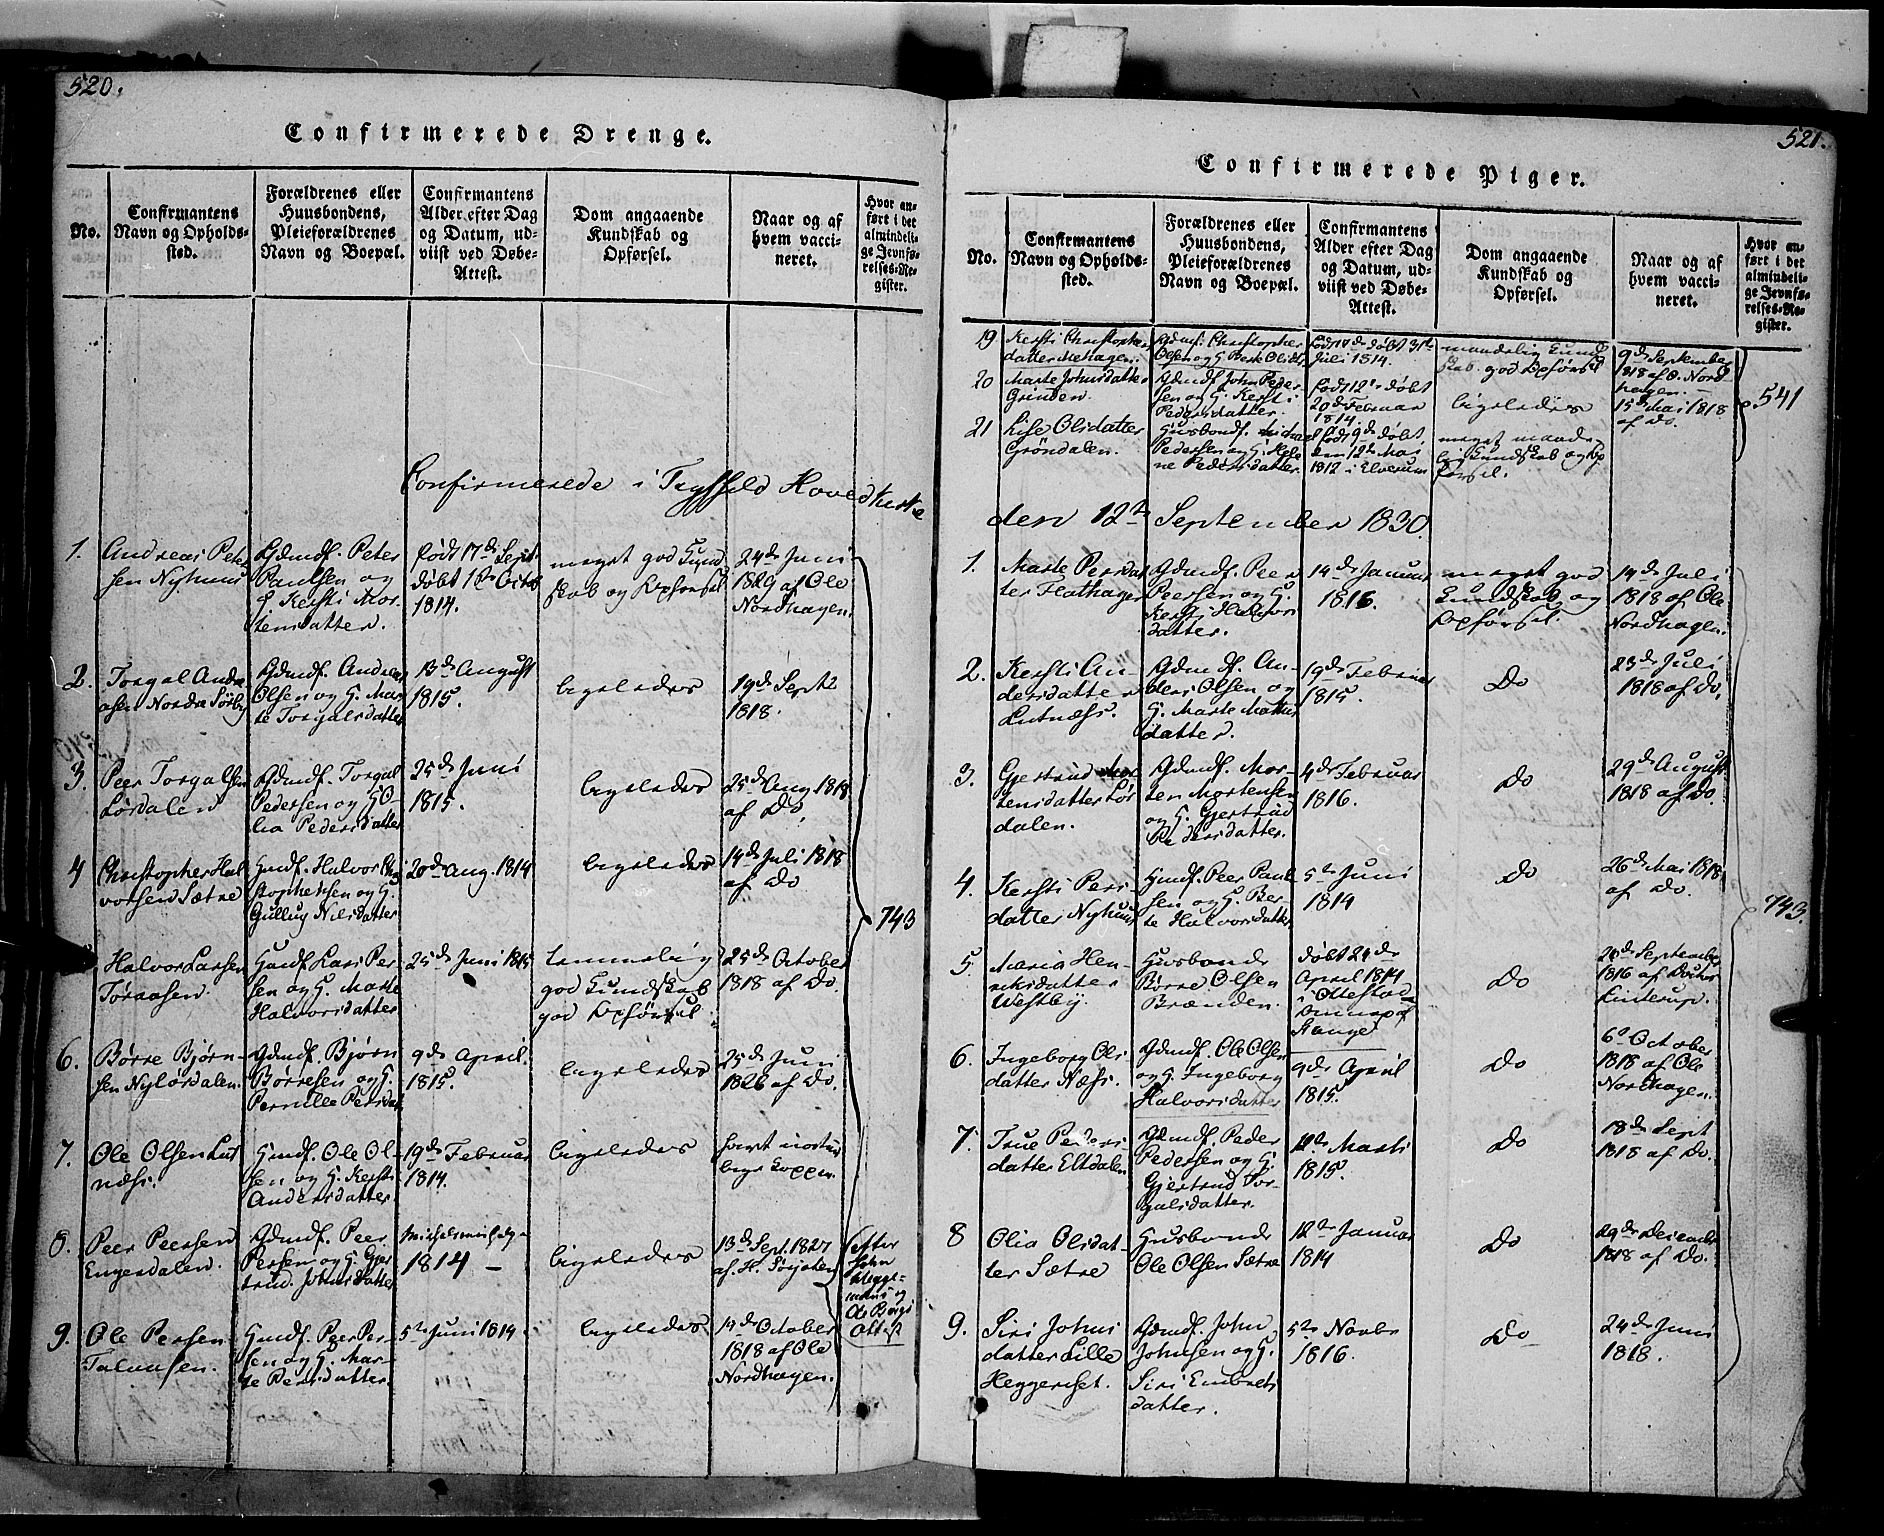 520.
Confirmerede Drenge.
No.
Confirmantens
Navn og Opholds-
sted.
Forældrenes eller
Huusbondens,
Pleieforældrenes
Navn og Boepæl.
Confirmantens
Alder efter Dag
og Datum, ud-
viist ved Døbe-
Attest.
Dom angaaende
Kundskab og
Opførsel.
Naar og af
hvem vacci-
neret.
Hvor an-
ført i det
almindeli-
ge Jevnfø-
relses-Re-
gister.
Confirmerede i Tryssild Hoved Kirke
1.
Andreas Peter
sen Nyhuus
Gdmd. Peter
Paulsen og
H. Kersti Mor-
tensdatter.
født 17de Sept.
døbt 1ste Octob
1814.
meget god Kund
skab og Opførsel
24de Juni
1829 af Ole
Nordhagen.
2.
Torgal Andre
asen Nordre Sørby
Gdmd. Andreas
Olsen og H. Mar-
te Torgalsdatter
13de August
1815.
ligeledes
19de Sept
1818.
3.
Peer Torgalsen
Lørdalen
Gdmd. Torgal
Pedersen og H O-
lia Pedersdatter
25de Juni
1815.
ligeledes
25de Aug 1818
af Do.
4
Christopher Hal
vorsen Sætre
Gmd. Halvor Chri
stophersen og H.
Gullug Nilsdatter
20de Aug. 1814
ligeledes
14de Juli 1818
af Do
743
Halvor Larsen
Toraasen.
Gmd. Lars Per-
sen og H. Marte
Halvorsdatter
25de Juni 1815
temmelig
god Kundskab
god Opførsel.
25de October
1818 af Do.
6.
Børre Bjørn-
sen Nylørdalen.
Gdmd. Bjørn
Børresen og H.
Pernille Persdat
9de April.
1815.
ligeledes
25de Juni
1826 af Do.
7.
Ole Olsen Lut
næss.
Gmd. Ole Ol-
sen og H. Kersti
Andersdatter
19de Februar
1814.
ligeledes
havt natur
lige Kopper.
8.
Peer Peersen
Engerdalen.
Gdmd. Peer
Persen og H. Gjer
trud Johnsdatter
1814 —
ligeledes
13de Sept. 1827
af H.
efter
Attest
9.
Ole Persen
Gmd. Peer Per-
sen og H. Mar-
te Persdatter
5te Juni 1814.
ligeledes
14de October
1818 af Ole
Nordhagen.
521.
Confirmerede Piger.
No.
Confirmantens
Navn og Opholds-
sted.
Forældrenes eller
Huusbondens,
Pleieforældrenes
Navn og Boepæl.
Confirmantens
Alder efter Dag
og Datum, ud-
viist ved Døbe-
Attest.
Dom angaaende
Kundskab og
Opførsel.
Naar og af
hvem vacci-
neret.
Hvor an-
ført i det
almindeli-
ge Jevnfø-
relses-Re-
gister.
19
Kersti Christophers
datter
Gdmd. Christopher
Olsen og H. Berte Olsdtr
født døbt 31te
Juli 1814.
maadelig Kund
skab. god Opførsel
9de September
1818 af O. Nord
hagen.
20
Marte Johnsdatter
Grinden.
Gdmd. John Peder-
sen og H. Kersti
Pedersdatter.
født 12te døbt
20de Februar
1814
ligeledes
15de Mai 1818
af Do.
541
21
Lise Olsdatter
Gröndalen.
Husbond.
Pedersen og H. Hele
ne Pedersdatter
født 9de døbt
den 12te Mai
1812 i Elverum
meget maade-
lig Kundskab og Op
førsel.
den 12te September 1830.
1.
Marte Persdat
ter Flathagen
Gdmd. Peer
Peersen og H.
Kersti Halvors
datter.
14de Januar
1816.
meget god
Kundskab og
Opførsel.
14de Juli
1818 af Ole
Nordhagen.
2.
Kersti An-
dersdatter
Lutnæss.
Gdmd. An-
ders Olsen og
H. Marte Mattis
datter.
19de Februar
1815.
Do
23de Juli
1818 af Do.
3.
Gjertrud Mor
tensdatter Lör
dalen.
Gdmd. Mor-
ten Mortensen
og H. Gjertrud
Pedersdatter.
4de Februar
1816.
Do
29de August
1818 af Do.
4.
Kersti Pers-
datter Nyhuus
Gmd. Peer Paul-
sen og H. Ber-
te Halvorsdatter
5te Juni
1814
Do
26de Mai 1818
af Do.
743.
5.
Maria Hen-
riksdatter
Westby.
Husbonde
Børre Olsen
Brænden.
døbt 24de
April 1814
i Ottestad
Annex af
Stange
Do
1816 af Doctor
Linterup.
6.
Ingeborg Ols
datter Næss.
Gdmd. Ole Olsen
og H. Ingeborg
Halvorsdatter
9de April
1815.
Do
6te October
1818 af Ole
Nordhagen.
7.
True Peders-
datter Eltdalen
Gdmd. Peder
Pedersen og H.
Gjertrud Tor-
galsdatter.
11te Marts
1815.
Do
18de Sept
1818 af Do.
8
Olia Olsdat-
ter Sætre
Husbonde
Ole Olsen Sætre
12te Januar
1814
Do
29de December
1818 af Do.
9.
Siri Johns
datter Lille
Heggeriset.
Gdmd. John
Johnsen og H.
Siri Embrets
datter.
5te Novbr
1816.
Do
24de Juni
1818.